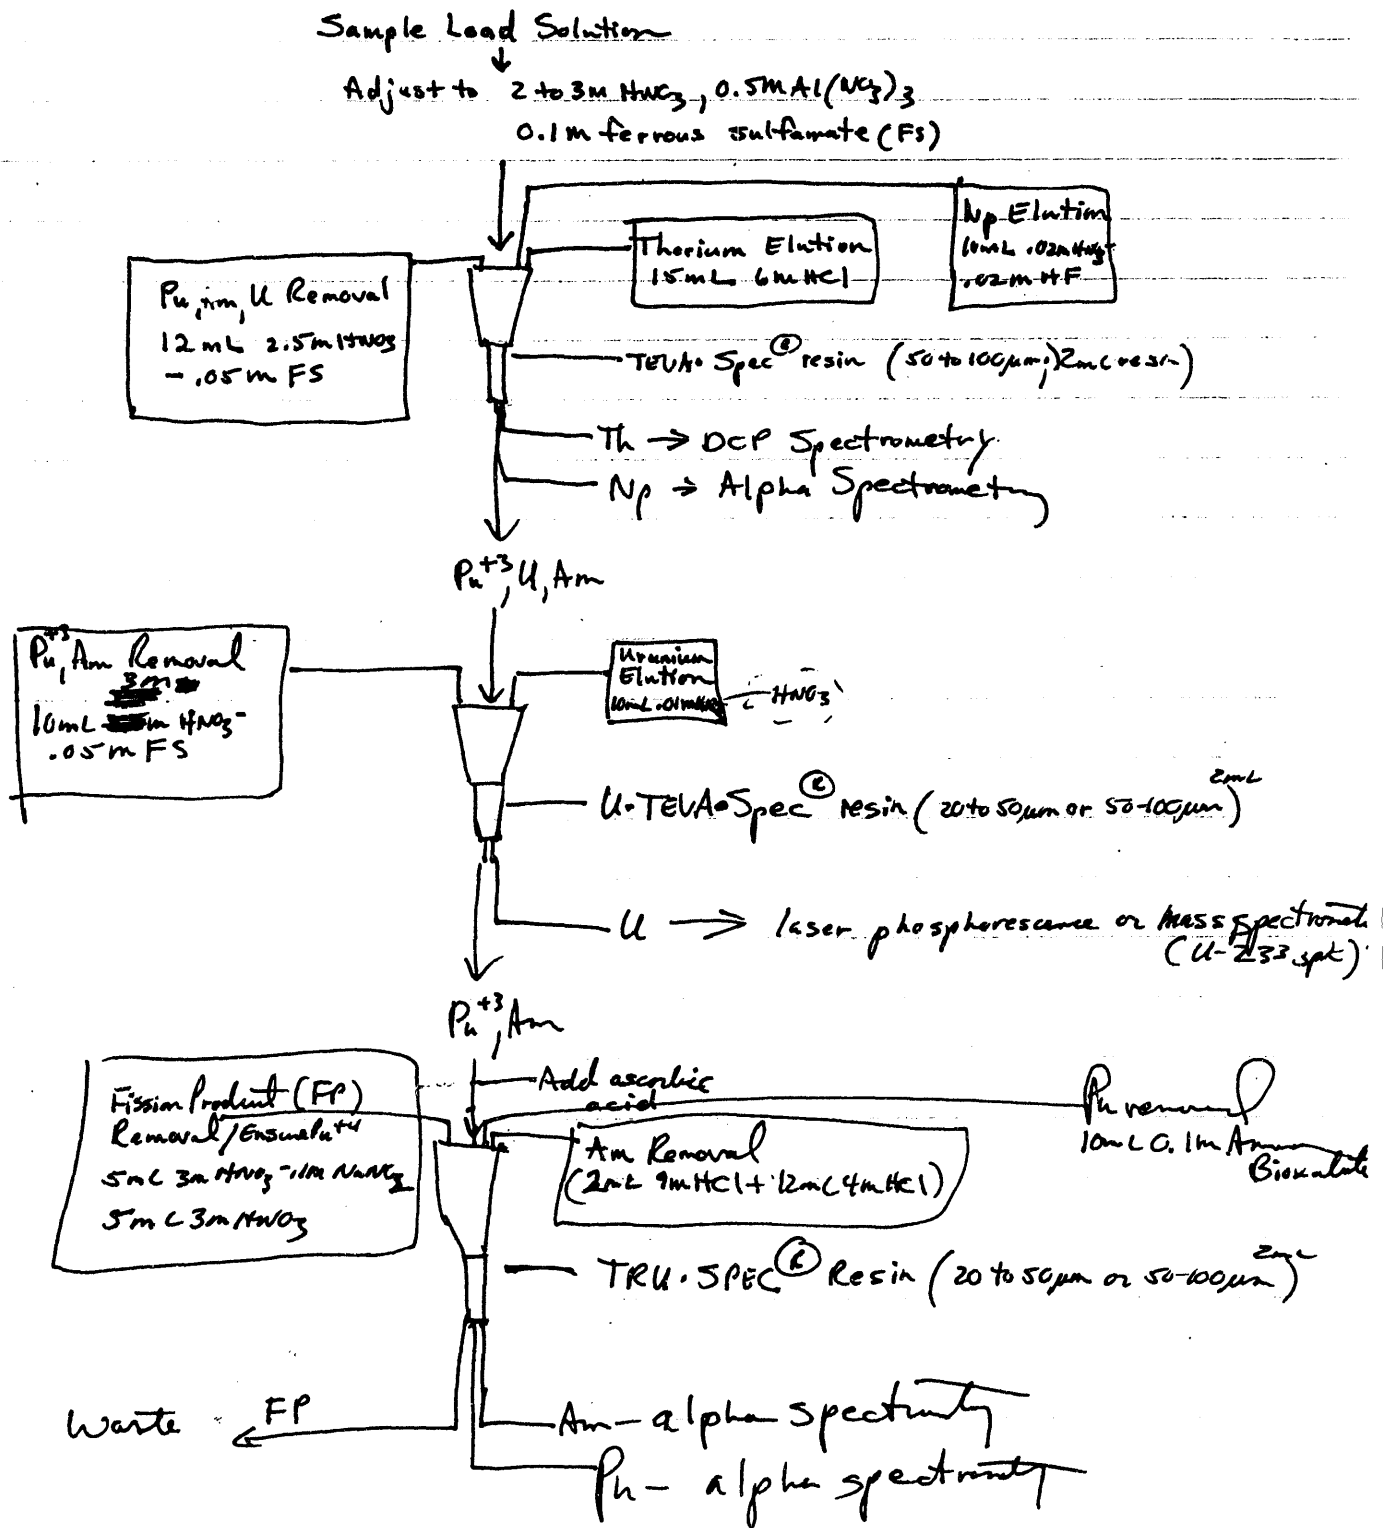 Sample Load Solution
Adjust to 2 to 3m HNO3, 0.5m Al(NO3)3
0.1m ferrous sulfamate (FS)
Np Elution
10mL .02m HNO3-
.02m HF
Thorium Elution
15mL 6m HCl
Pu, Am, U Removal
12 mL 2.5m HNO3
- .05m FS
TEVA•Spec® resin (50 to 100μm;) 2mL resin)
Th → DCP Spectrometry
Np → Alpha Spectrometry
Pu+3, U, Am
Pu+3, Am Removal
3m
10mL m HNO3-
.05m FS
Uranium
Elution
10mL .01m
(HNO3)
U•TEVA•Spec® resin (20 to 50μm or 50-100μm) 2mL
U → laser phosphorescence or mass spectromet
(U-233 spk)
Pu+3, Am
Add ascorbic
acid
Fission Product (FP)
Removal/Ensure Pu+4
5mL 3m HNO3-.1m NaNO2
5mL 3m HNO3
Am Removal
(2mL 9m HCl + 12mL 4m HCl)
Pu removal
10mL 0.1m Amm
Bioxalate
TRU•SPEC® Resin (20 to 50μm or 50-100μm) 2mL
Waste ← FP
Am - alpha spectromty
Pu - alpha spectromty